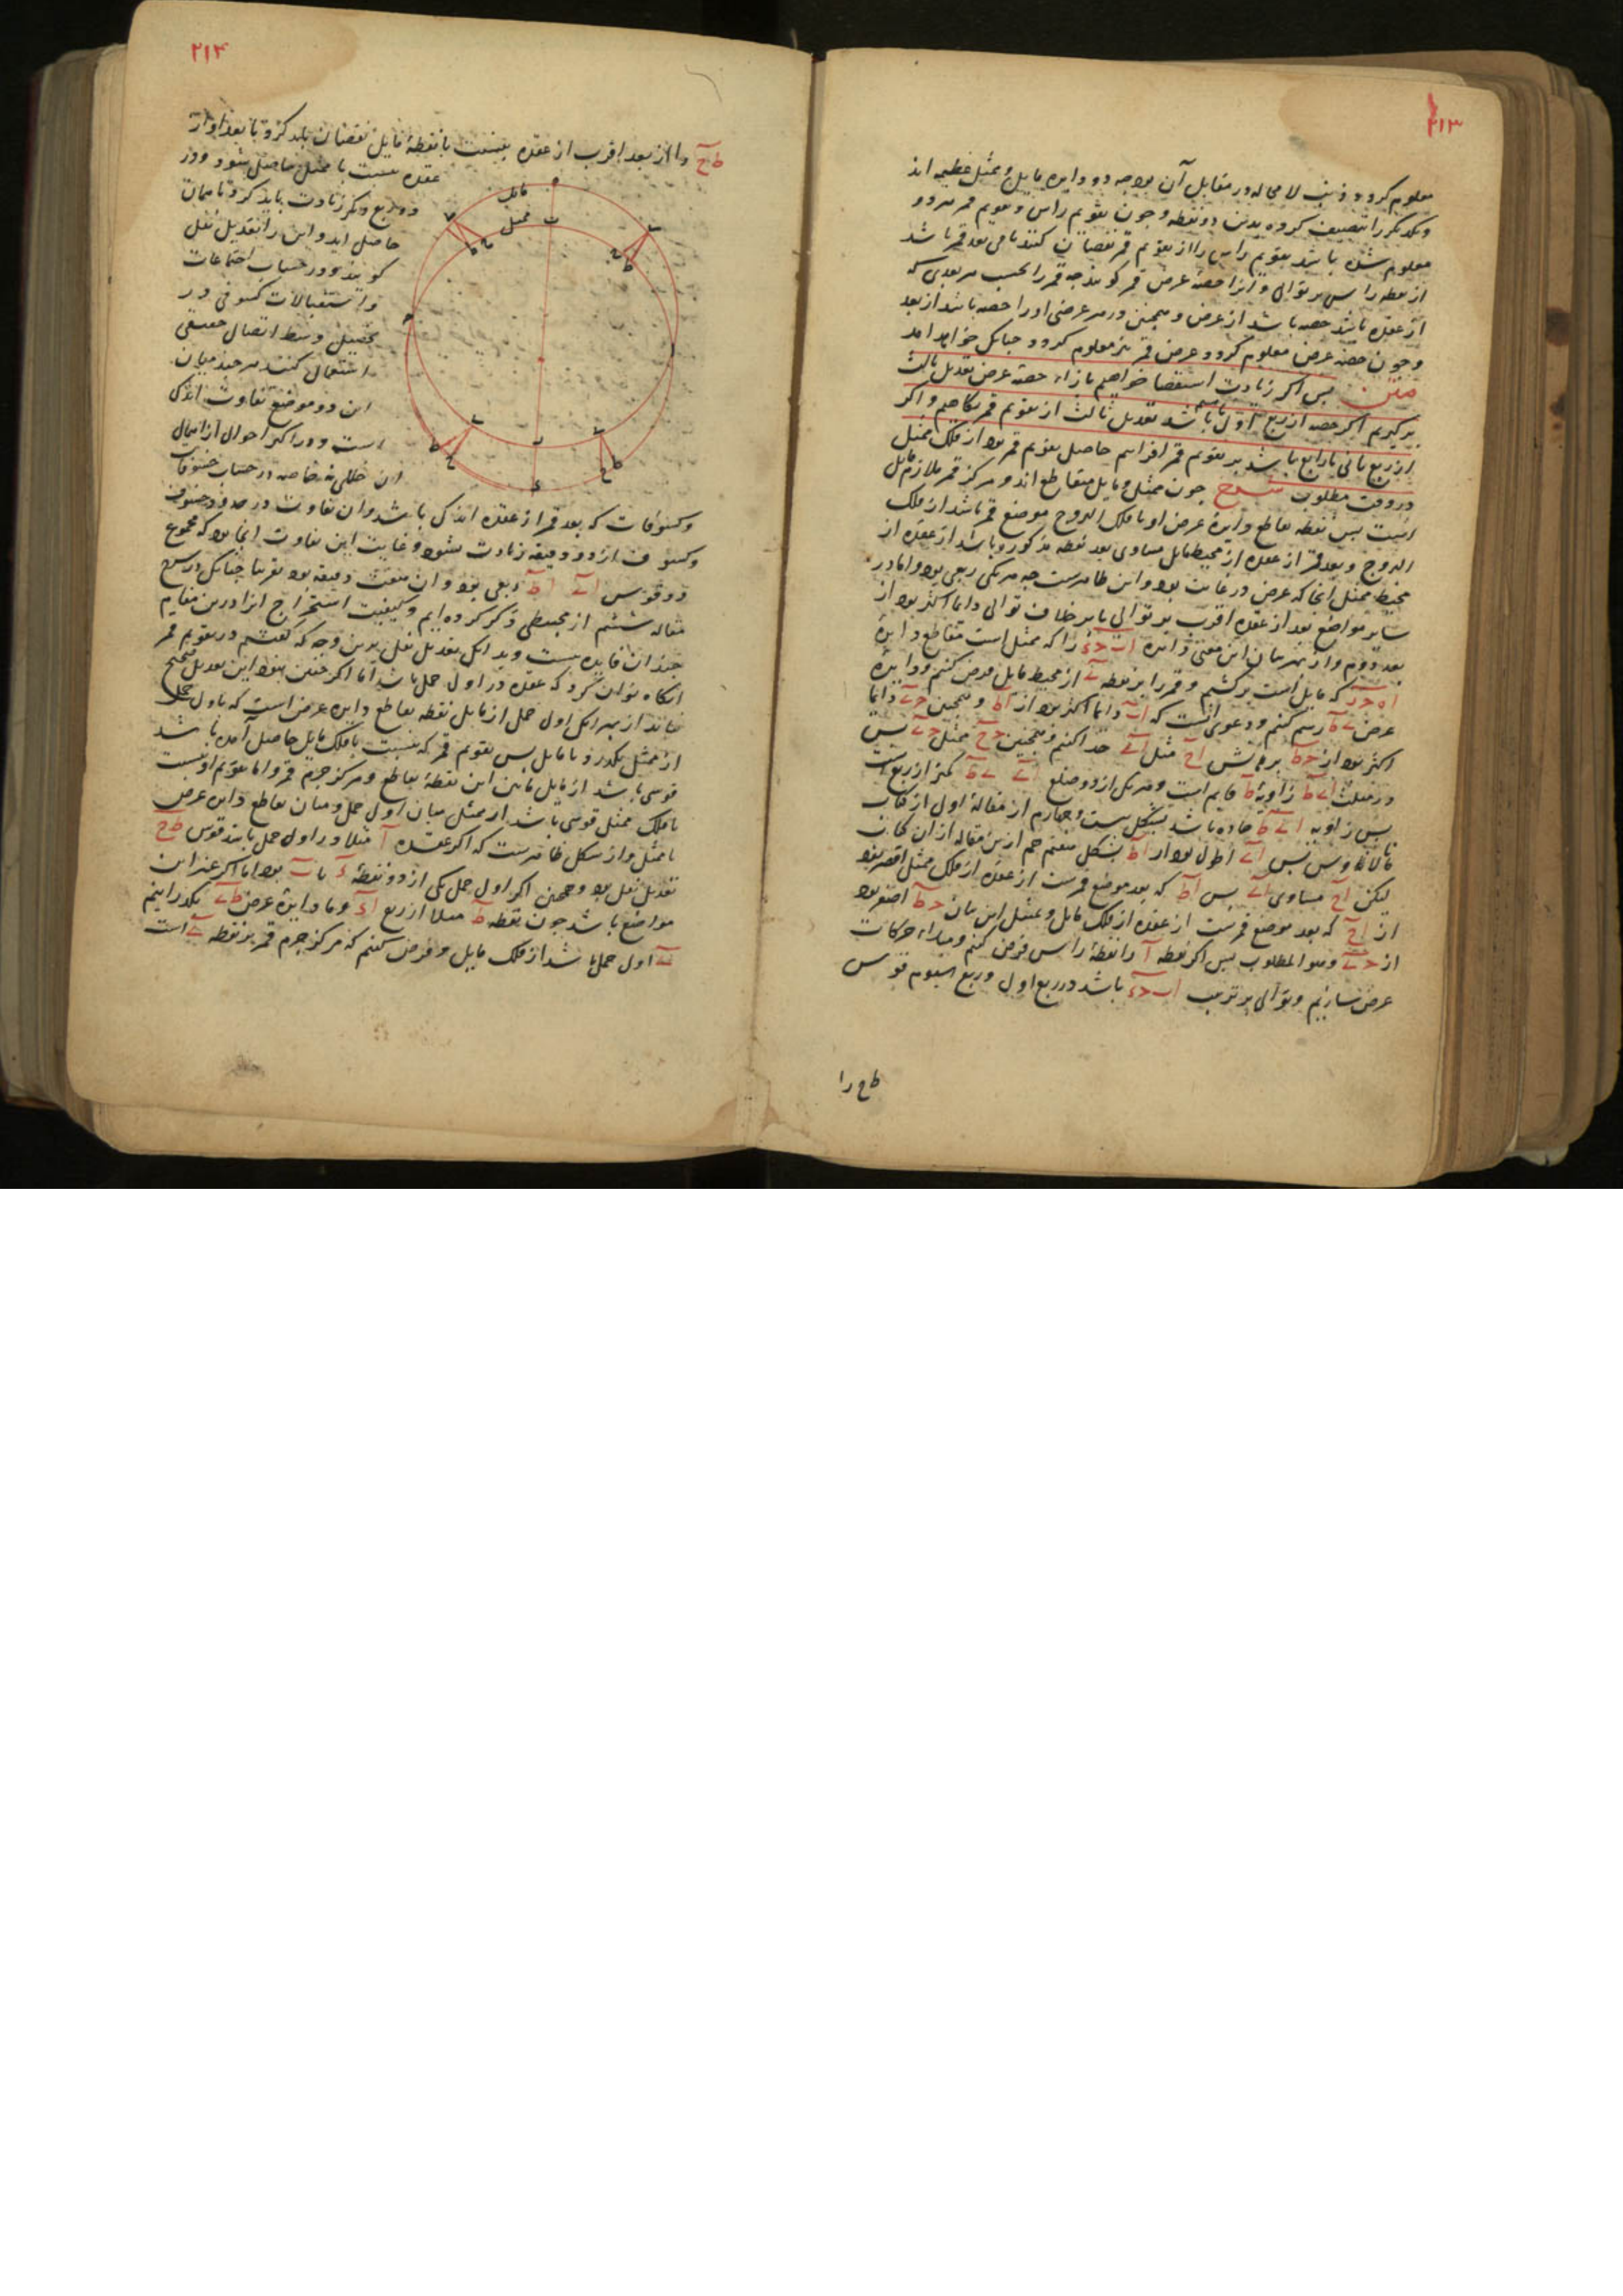 ۲۱۳
معلوم کردد ذنب لا محاله در مقابل آن بود چه دو دایره مایل و ممثل عظیمه اند
و یکدیکر را تنصیف کرده بدین دو نقطه و چون تقویم راس و تقویم قمر هر دو
معلوم شده باشد تقویم راس را از تقویم قمر نقصان کنند باقی بعد قمر باشد
از نقطه راس بر توالی و آنرا حصه عرض قمر کویند چه قمر را بحسب هر بعدی که
از عقده باشد حصه باشد از عرض و همچنین در هر عرضی او را حصه باشد از بعد
و چون حصه عرض معلوم کردد عرض قمر نیز معلوم کردد چنانکه خواهد آمد
متن پس اکر زیادت استقصا خواهیم بازاء حصه عرض تعدیل ثالث
بر کیریم اکر حصه از ربع اول یا سیم باشد تعدیل ثالث از تقویم قمر بکاهیم و اکر
از ربع ثانی یا رابع باشد بر تقویم قمر افزاییم حاصل تقویم قمر بود از فلک ممثل
در وقت مطلوب شرح چون ممثل و مایل متقاطع اند و مرکز قمر ملازم مایل
است پس نقطه تقاطع دایره عرض او با فلک البروج موضع قمر باشد از فلک
البروج و بعد قمر از عقده از محیط مایل مساوی بعد نقطه مذکوره باشد از عقده از
محیط ممثل آنجا که عرض در غایت بود و این ظاهرست چه هر یکی ربعی بود و اما در
سایر مواضع بعد از عقده اقرب بر توالی یا بر خلاف توالی دایما اکثر بود از
بعد دوم و از بهر بیان این معنی دایره اب حد را که ممثل است متقاطع دایره
اه حر که مایل است بر کشیم و قمر را بر نقطه ے از محیط مایل فرض کنیم و دایره
عرض ے ط رسم کنیم و دعوی آنست که اے دایما اکثر بود از اط و همچنین حے دایما
اکثر بود از حط برهانش اح مثل اے جدا کنیم و همچنین حح مثل حے پس
در مثلث اے ط زاویه ط قایم است و هر یکی از دو ضلع اے ے ط کمتر از ربع است
پس زاویه اے ط حاده باشد بشکل بیست و چهارم از مقاله اول از کتاب
مالاناوس پس اے اطول بود از اط بشکل هفتم هم ازین مقاله از آن کتاب
لیکن اح مساوی اے پس اط که بعد موضع قمرست از عقده از فلک ممثل اقصر بود
از اح که بعد موضع قمرست از عقده از فلک مایل و بمثل این بیان حط اصغر بود
از حے و هو المطلوب پس اکر نقطه آ را نقطه راس فرض کنیم و مبداء حرکات
عرض سازیم و توالی بر ترتیب اب حد باشد در ربع اول و ربع سیوم قوس
ط ح را
۲۱۴
ط ح را از بعد اقرب از عقده بنسبت با نقطه مایل نقصان باید کرد تا بعد او از
عقده بنسبت با ممثل حاصل شود و در
دو ربع دیکر زیادت باید کرد تا همان
حاصل آید و این را تعدیل نقل
کویند و در حساب اجتماعات
و استقبالات کسوفی در
تحصیل وسط اتصال حقیقی
استعمال کنند هر چند میان
این دو موضع تفاوت اندک
است و در اکثر احوال از اهمال
آن خللی نه خاصه در حساب خسوفات
مایل
ممثل
و کسوفات که بعد قمر از عقده اندک باشد و آن تفاوت در حدود خسوف
و کسوف از دو دقیقه زیادت نشود و غایت این تفاوت آنجا بود که مجموع
دو قوس اے اط ربعی بود و آن هفت دقیقه بود تقریبا چنانکه در شرح
مقاله ششم از مجسطی ذکر کرده ایم و کیفیت استخراج آنرا درین مقام
چندان فایده نیست و بدانکه تعدیل نقل برین وجه که کفتیم در تقویم قمر
آنکاه توان کرد که عقده در اول حمل باشد اما اکر چنین نبود این تعدیل صحیح
نماند از بهر آنکه اول حمل از مایل نقطه تقاطع دایره عرض است که باول حمل
از ممثل بکذرد با مایل پس تقویم قمر که بنسبت با فلک مایل حاصل آمده باشد
قوسی باشد از مایل مابین این نقطه تقاطع و مرکز جرم قمر و اما تقویم او بنسبت
با فلک ممثل قوسی باشد از ممثل میان اول حمل و میان تقاطع دایره عرض
با ممثل و از شکل ظاهرست که اکر عقده آ مثلا در اول حمل باشد قوس ط ح
تعدیل نقل بود و همچنین اکر اول حمل یکی از دو نقطه د یا ب بود اما اکر غیر این
مواضع باشد چون نقطه ط مثلا از ربع اد و ما دایره عرض ط ے بکذرانیم
ے اول حمل باشد از فلک مایل و فرض کنیم که مرکز جرم قمر بر نقطه ے است